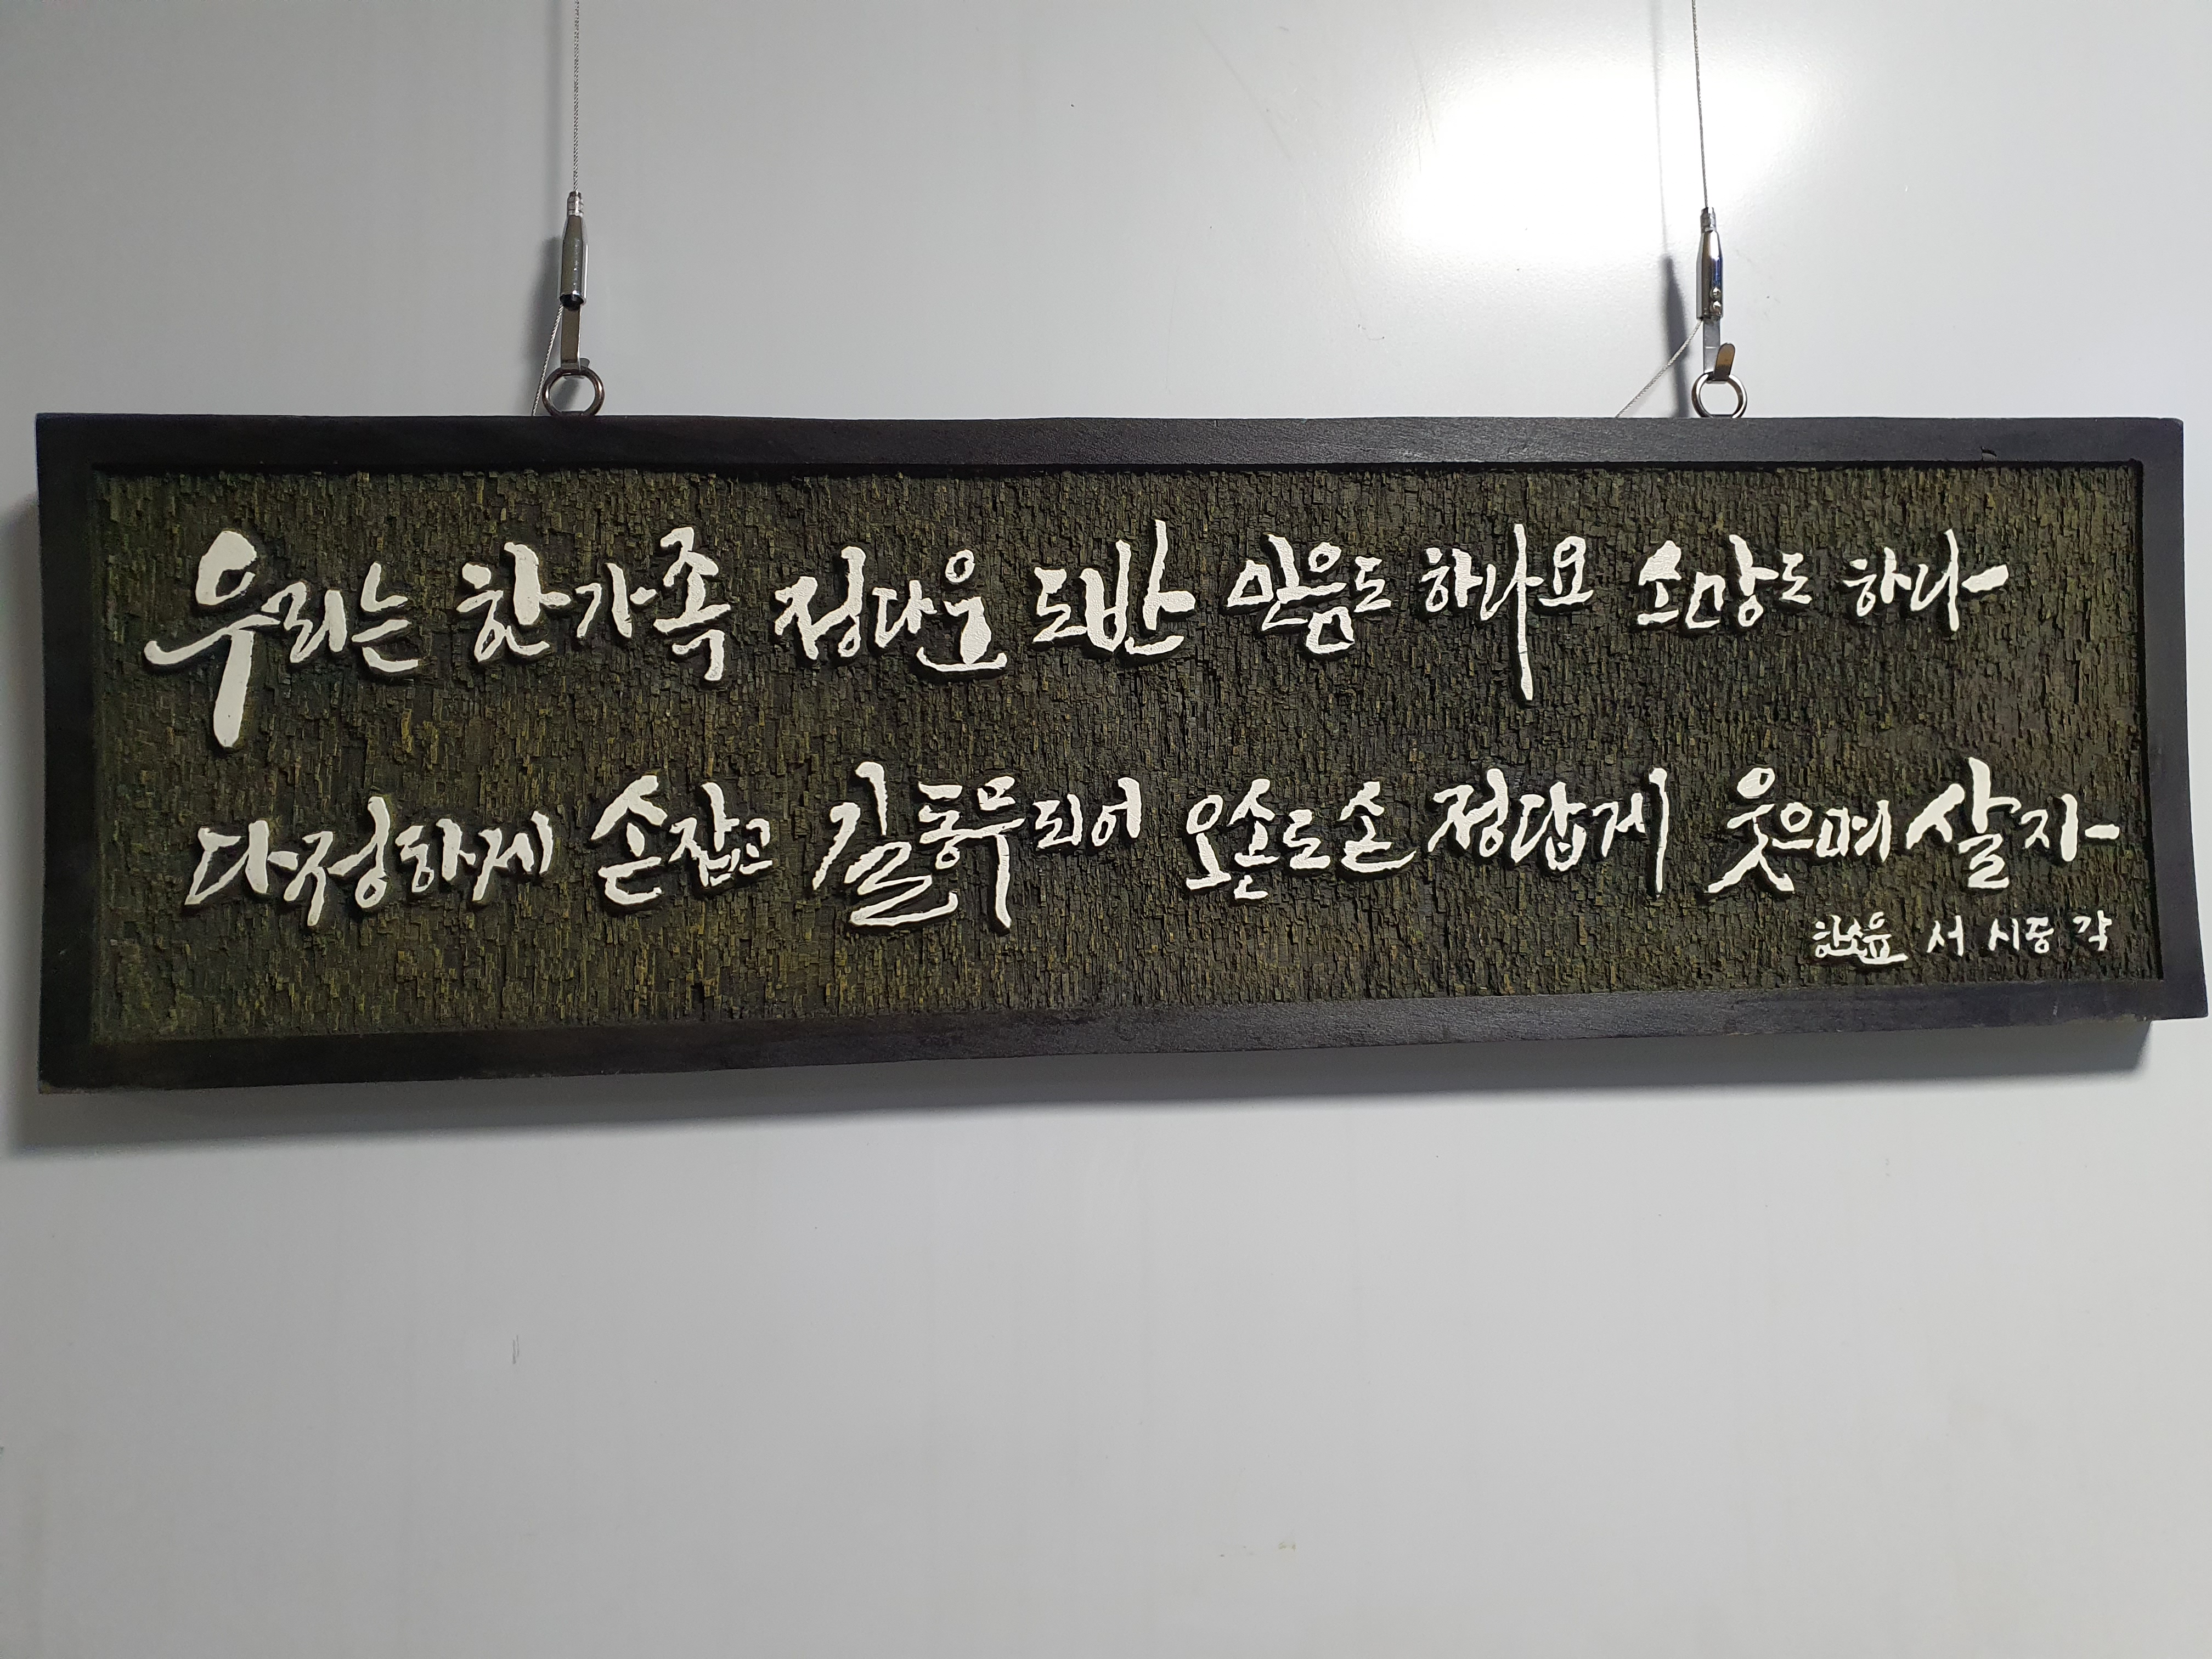 우리는 한가족 정다운 도반 믿음도 하나요 소망도 하나
다정하게 손잡고 길동무되어 오손도손 정답게 웃으며 살자
한소윤 서 시중 각